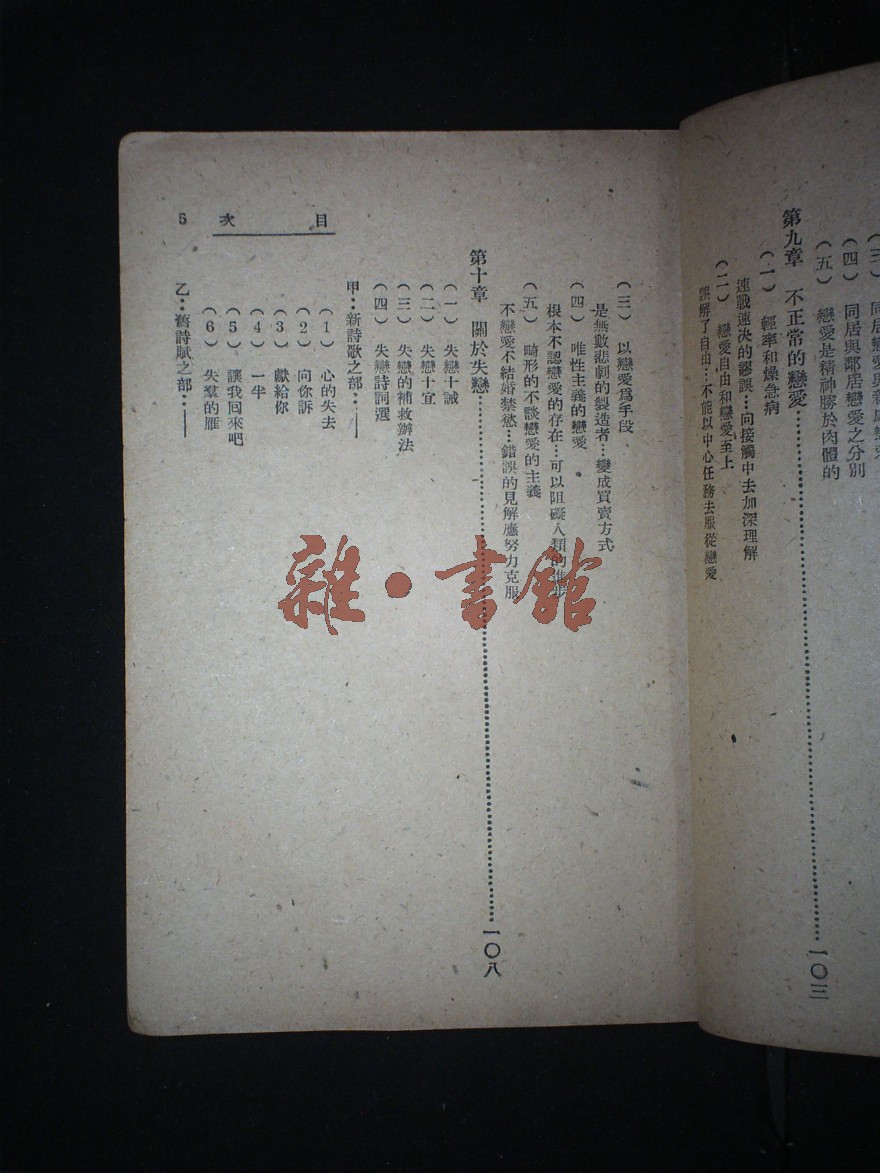 同居戀愛與
（四）　同居與鄰居戀愛之分別
（五）　戀愛是精神勝於肉體的
第九章　不正常的戀愛…………一〇三
（一）　輕率和燥急病
速戰速决的謬誤…向接觸中去加深理解
（二）　戀愛自由和戀愛至上
誤解了自由…不能以中心任務去服從戀愛
目次　5
（三）　以戀愛爲手段
是無數悲劇的製造者…變成買賣方式
（四）　唯性主義的戀愛
根本不認戀愛的存在…可以阻礙人類的進
（五）　畸形的不談戀愛的主義
不戀愛不結婚禁慾…錯誤的見解應努力克服
第十章　關於失戀…………一〇八
（一）　失戀十誡
（二）　失戀十宜
（三）　失戀的補救辦法
（四）　失戀詩詞選
甲：新詩歌之部：——
（1）　心的失去
（2）　向你訴
（3）　獻給你
（4）　一半
（5）　讓我回來吧
（6）　失羣的雁
乙：舊詩賦之部：——
雜·書館